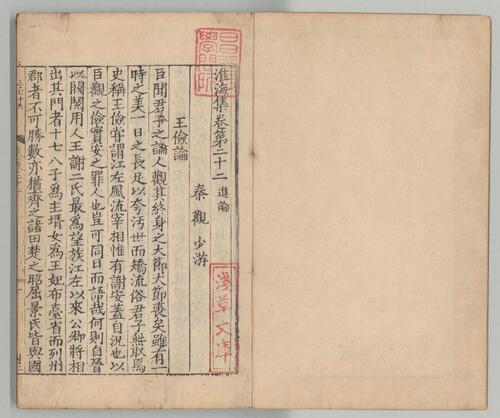 昌平坂
學問所
淮海集卷第二十二 進論
秦觀 少游
淺草文庫
王儉論
臣聞君子之論人觀其終身之大節大節喪矣雖有一
時之美一日之長足以夸汚世而矯流俗君子無取焉
史稱王儉甞謂江左風流宰相惟有謝安蓋自況也以
臣觀之儉實安之罪人也豈可同日而語哉何則自晉
以閥閱用人王謝二氏最為望族江左以來公卿將相
出其門者十七八子為主壻女為王妃布臺省而列州
郡者不可勝數亦猶齊之諸田楚之昭屈景氏皆與國